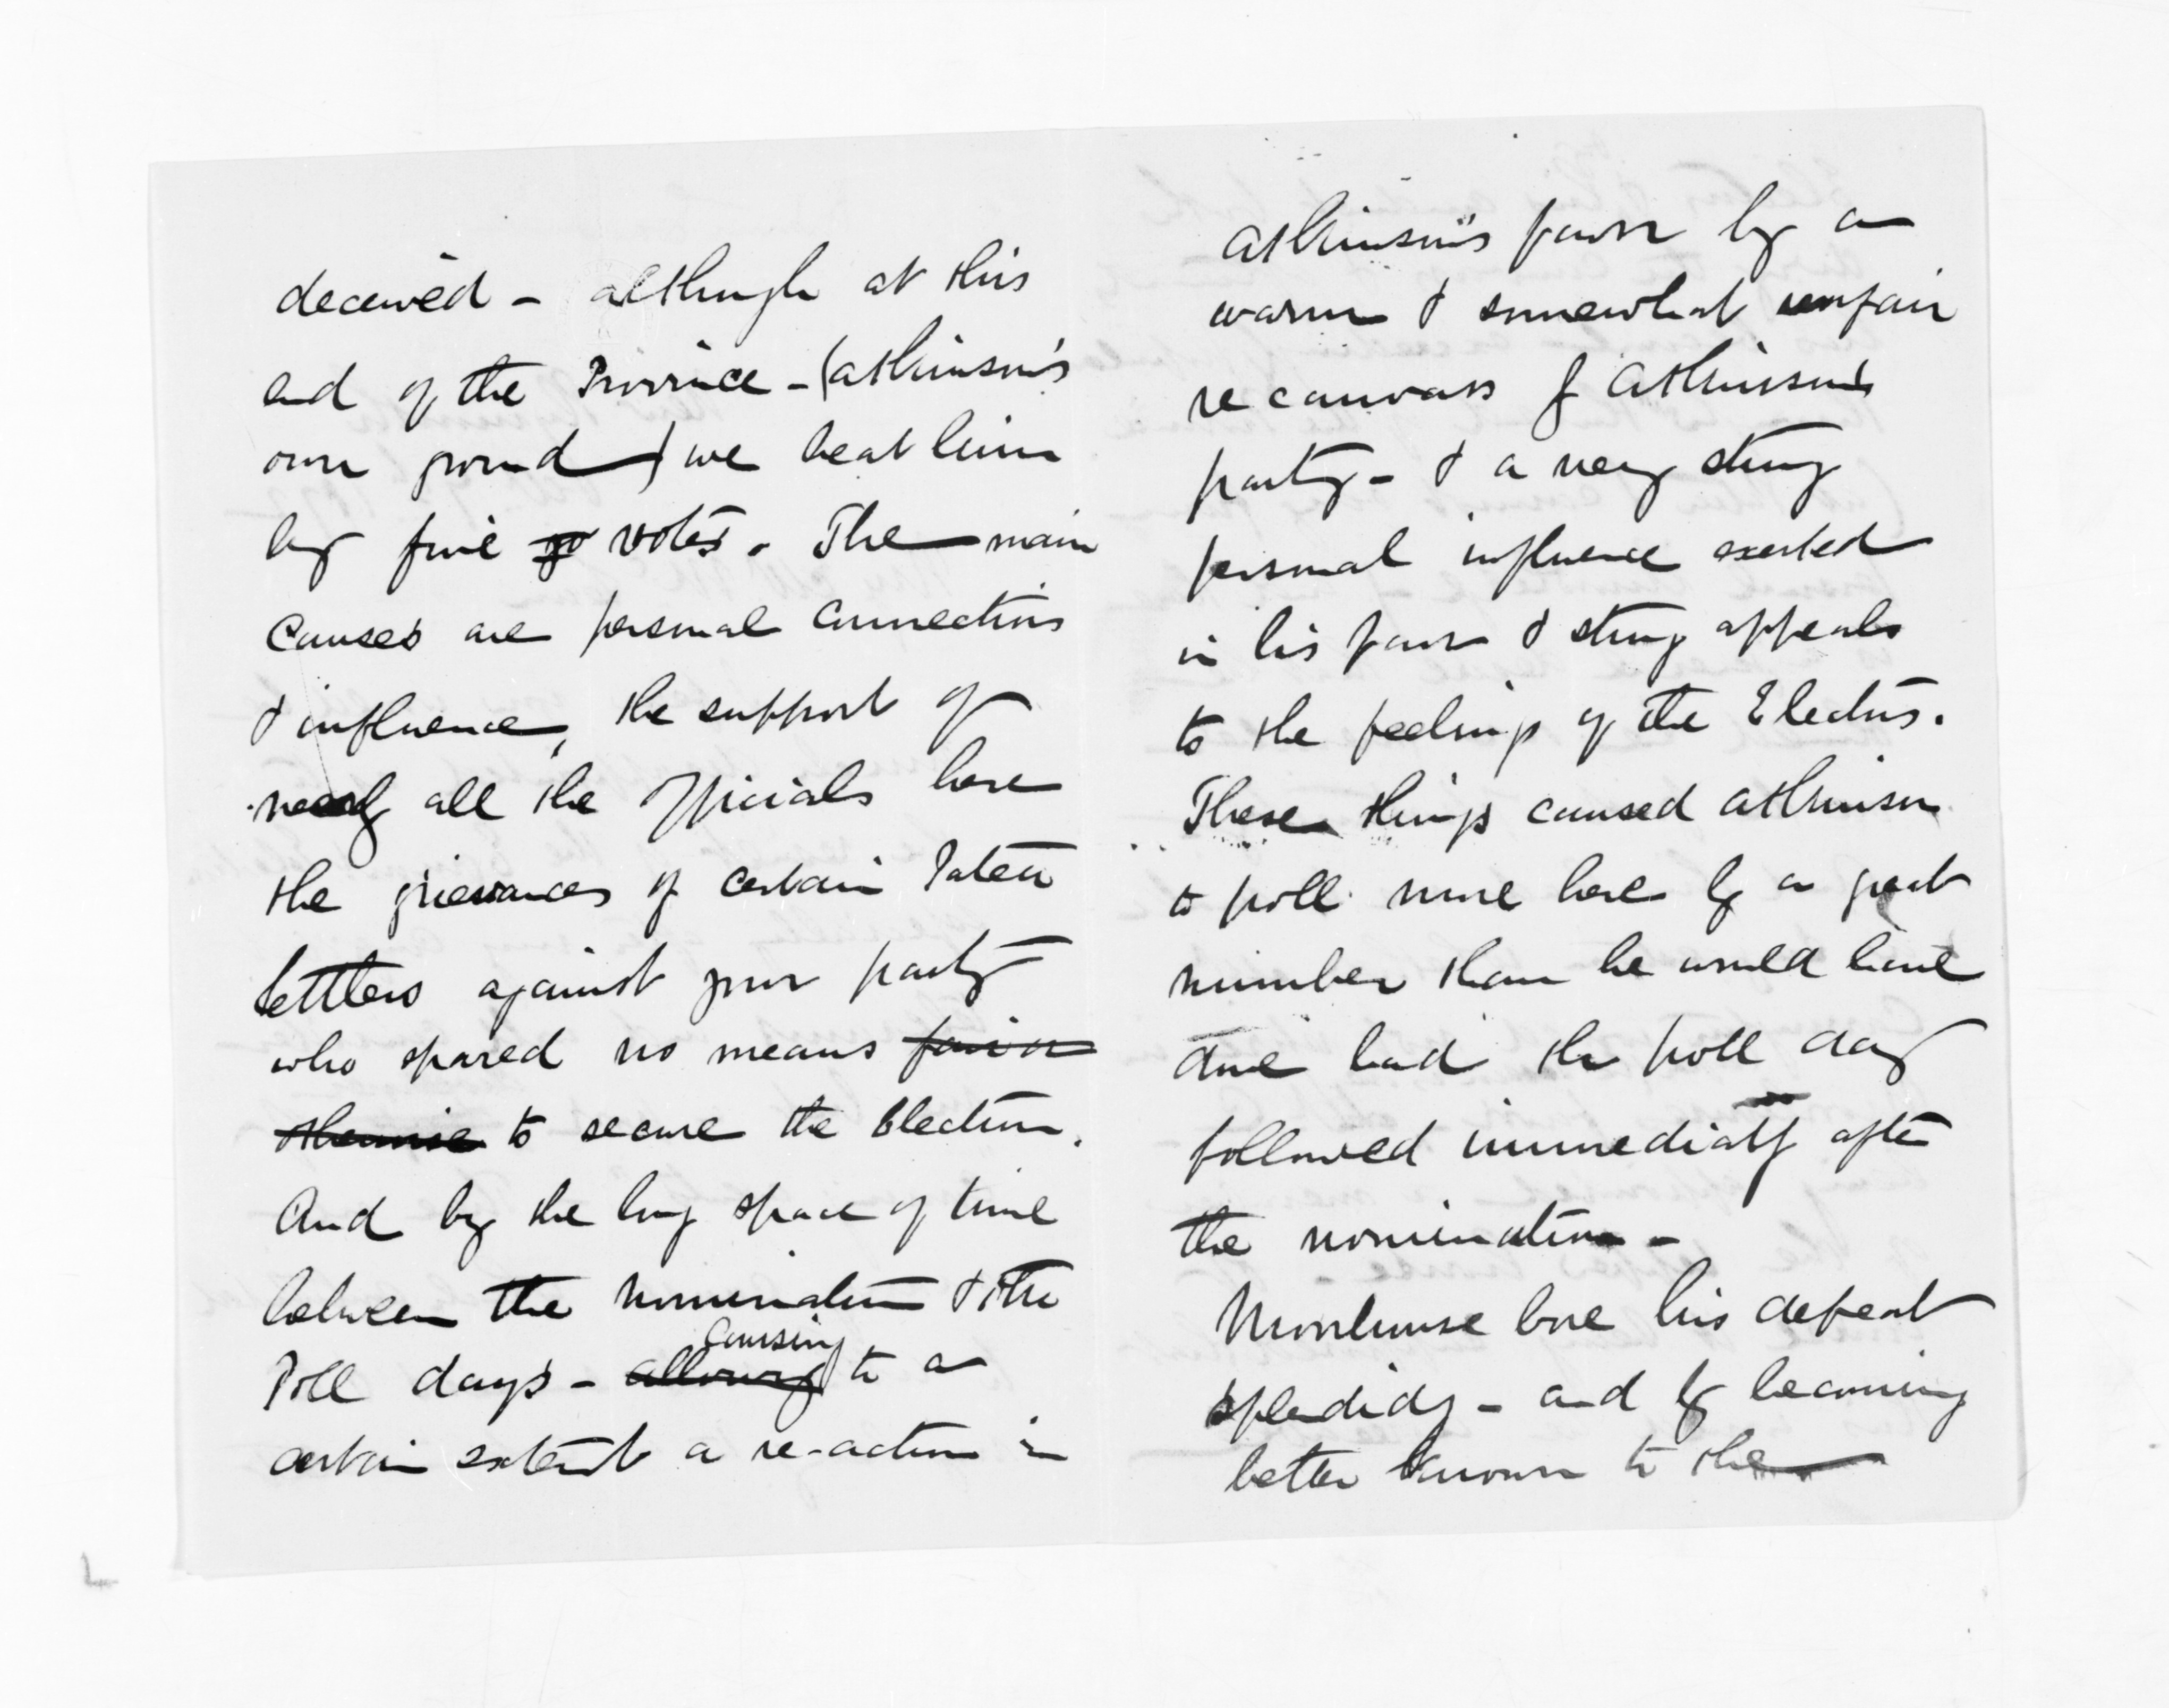 deceived - although at this
end of the Province - (Atkinson's
own ground) we beat him
by five votes. The main
causes are personal connections
& influence, the support of
nearly all the officials here
the grievances of certain Patea
settlers against your party
who spared no means fair or
otherwise to secure the Election.
And by the long space of time
between the nomination & the
causing
Poll days - allowing to a
certain extent a re-action in
Atkinson's favor by a
warm & somewhat unfair
recanvass of Atkinson's
party - & a very strong
personal influence exerted
in his favor & strong appeals
to the feelings of the Electors.
These things caused Atkinson
to poll more here by a great
number than he would have
done had the poll day
followed immediatly after
the nomination -
Moorhouse bore his defeat
splendidly - and by becoming
better known to the